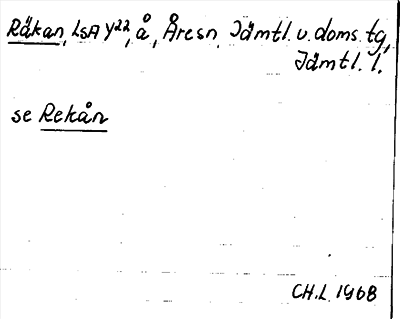 Räkan, LSA Y22, å, Åresn. Jämtl. v. doms. tg,
Jämtl. l.
se Rekån
CH.L. 1968